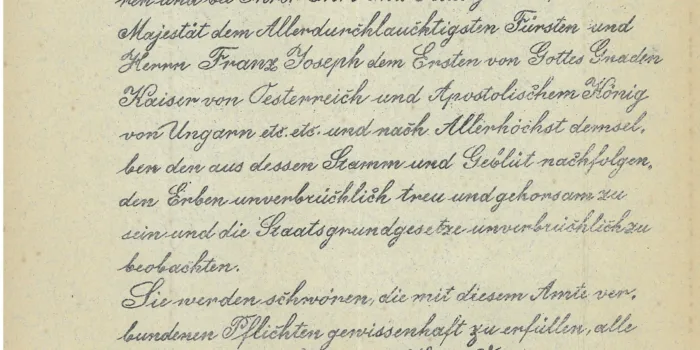 ren und bei Ihrer Ehre und
Majestät dem Allerdurchlauchtigsten Fürsten und
Herrn Franz Joseph dem Ersten von Gottes Gnaden
Kaiser von Oesterreich und Apostolischem König
von Ungarn etc. etc. und nach Allerhöchst demsel-
ben den aus dessen Stamm und Geblüt nachfolgen-
den Erben unverbrüchlich treu und gehorsam zu
sein und die Staatsgrundgesetze unverbrüchlich zu
beobachten.
Sie werden schwören, die mit diesem Amte ver-
bundenen Pflichten gewissenhaft zu erfüllen, alle